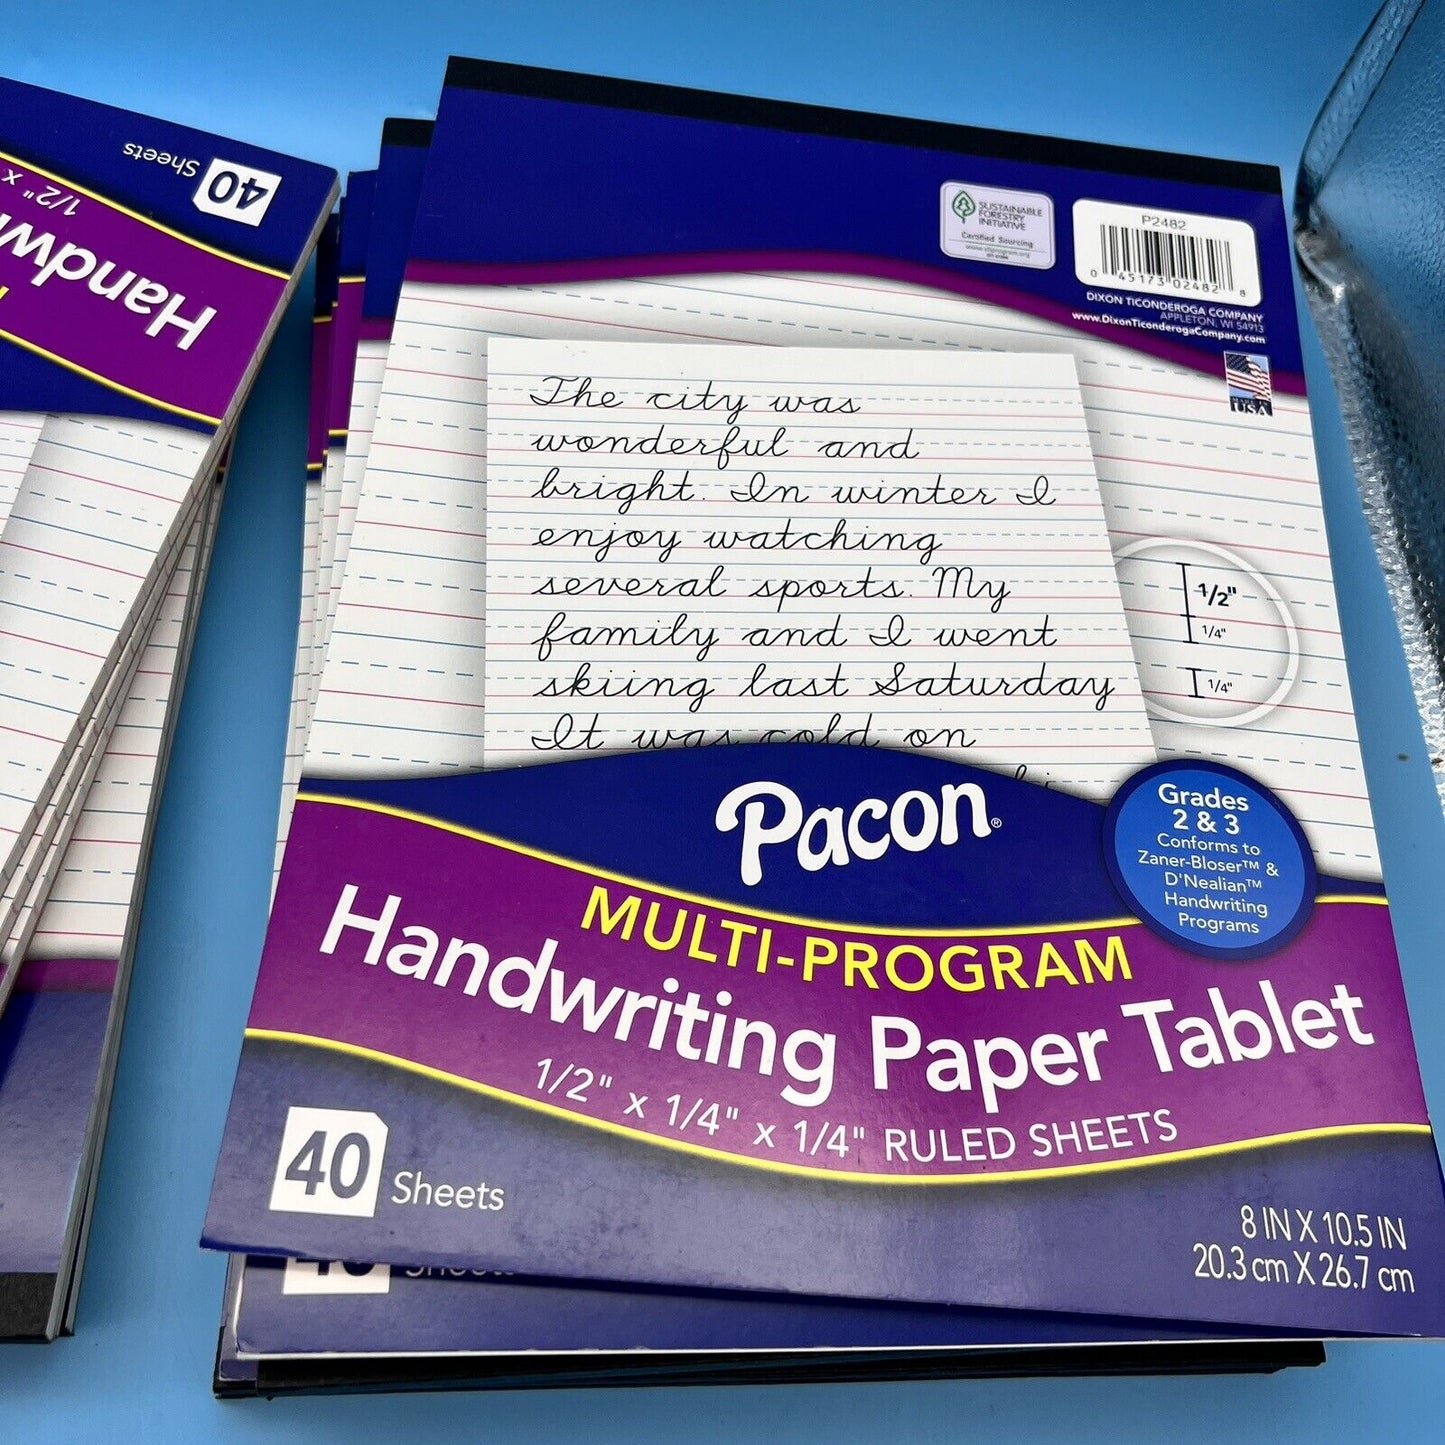 40 Sheets
1/2" x
SUSTAINABLE
FORESTRY
INITIATIVE
Certified Sourcing
www.sfiprogram.org
P2482
0 45173 02482 8
DIXON TICONDEROGA COMPANY
APPLETON, WI 54913
www.DixonTiconderogaCompany.com
MADE IN
USA
The city was
wonderful and
bright. In winter I
enjoy watching
several sports. My
family and I went
skiing last Saturday
It was cold on
1/2"
1/4"
1/4"
Pacon®
Grades
2 & 3
Conforms to
Zaner-Bloser™ &
D'Nealian™
Handwriting
Programs
MULTI-PROGRAM
Handwriting Paper Tablet
1/2" x 1/4" x 1/4" RULED SHEETS
40 Sheets
8 IN X 10.5 IN
20.3 cm X 26.7 cm
40 Sheets